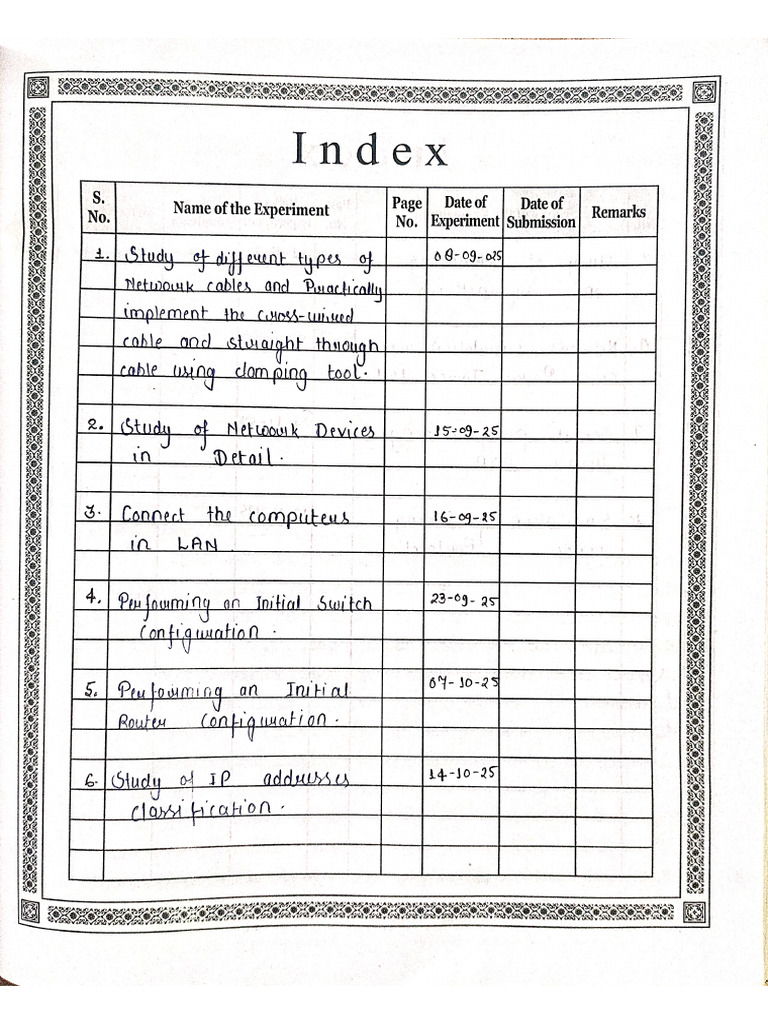 Index
S. No. Name of the Experiment Page No. Date of Experiment Date of Submission Remarks
1. Study of different types of 08-09-025
Network cables and Practically
implement the cross-wired
cable and straight through
cable using clamping tool.
2. Study of Network Devices 15-09-25
in Detail.
3. Connect the computers 16-09-25
in LAN
4. Performing an Initial Switch 23-09-25
Configuration.
5. Performing an Initial 07-10-25
Router Configuration.
6. Study of IP addresses 14-10-25
classification.